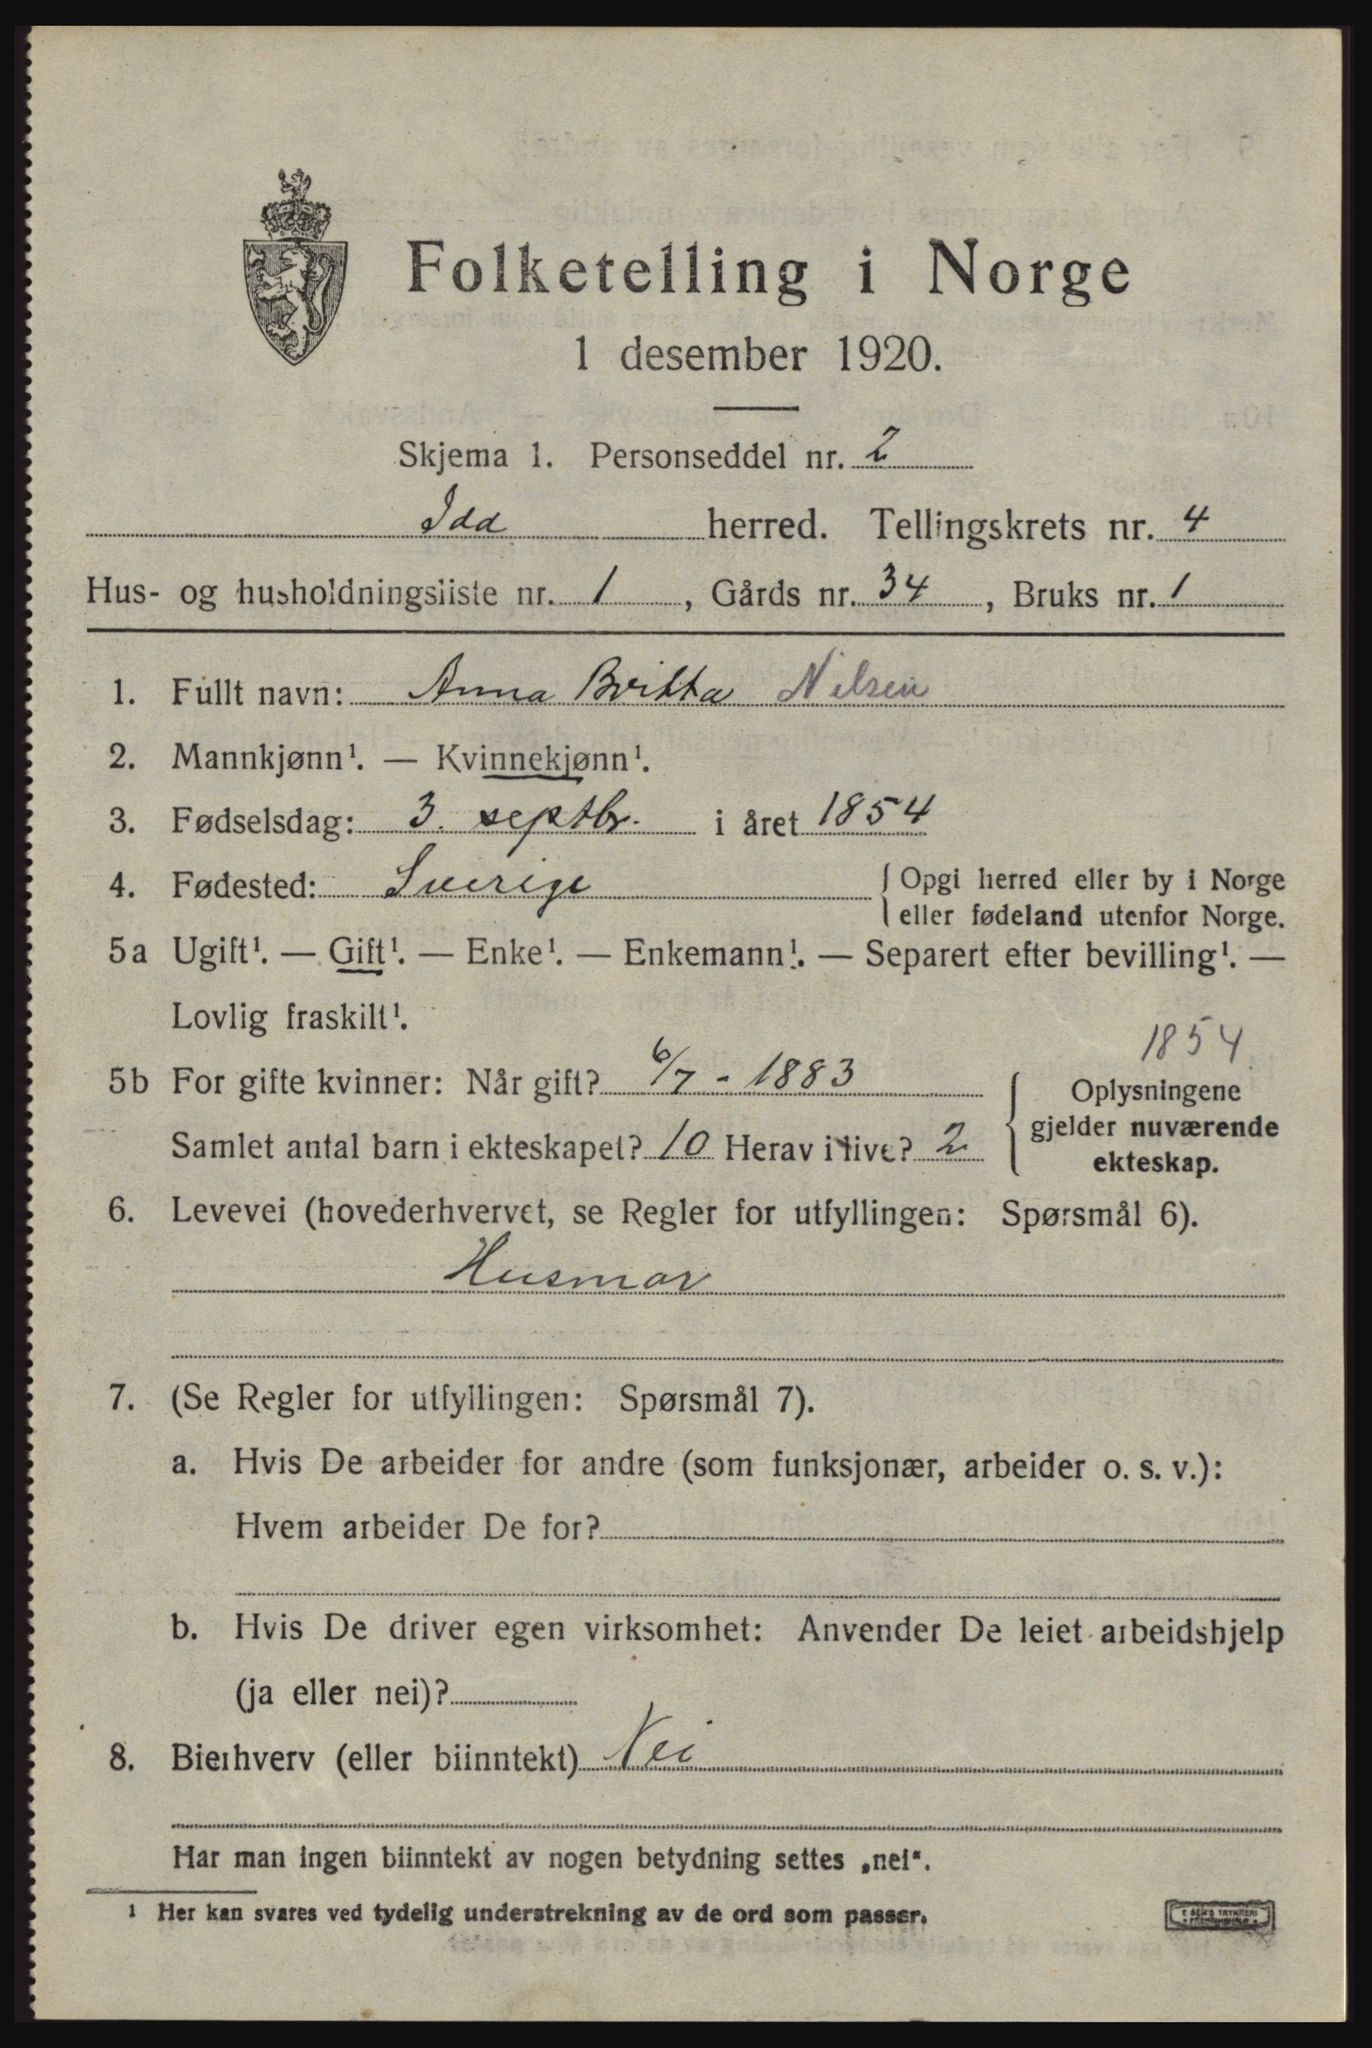 Folketelling i Norge
1 desember 1920.
Skjema 1. Personseddel nr. 2
Idd herred. Tellingskrets nr. 4
Hus- og husholdningsliste nr. 1, Gårds nr. 34, Bruks nr. 1
1. Fullt navn: Anna Britta Nilsen
2. Mannkjønn¹. — Kvinnekjønn¹.
3. Fødselsdag: 3. septbr. i året 1854
4. Fødested: Sverige { Opgi herred eller by i Norge
eller fødeland utenfor Norge.
5a Ugift¹. — Gift¹. — Enke¹. — Enkemann¹. — Separert efter bevilling¹. —
Lovlig fraskilt¹.
1854
5b For gifte kvinner: Når gift? 6/7 - 1883
Samlet antal barn i ekteskapet? 10 Herav i live? 2
Oplysningene
gjelder nuværende
ekteskap.
6. Levevei (hovederhvervet, se Regler for utfyllingen: Spørsmål 6).
Husmor
7. (Se Regler for utfyllingen: Spørsmål 7).
a. Hvis De arbeider for andre (som funksjonær, arbeider o. s. v.):
Hvem arbeider De for?
b. Hvis De driver egen virksomhet: Anvender De leiet arbeidshjelp
(ja eller nei)?
8. Bierhverv (eller biinntekt) Nei
Har man ingen biinntekt av nogen betydning settes „nei“.
¹ Her kan svares ved tydelig understrekning av de ord som passer.